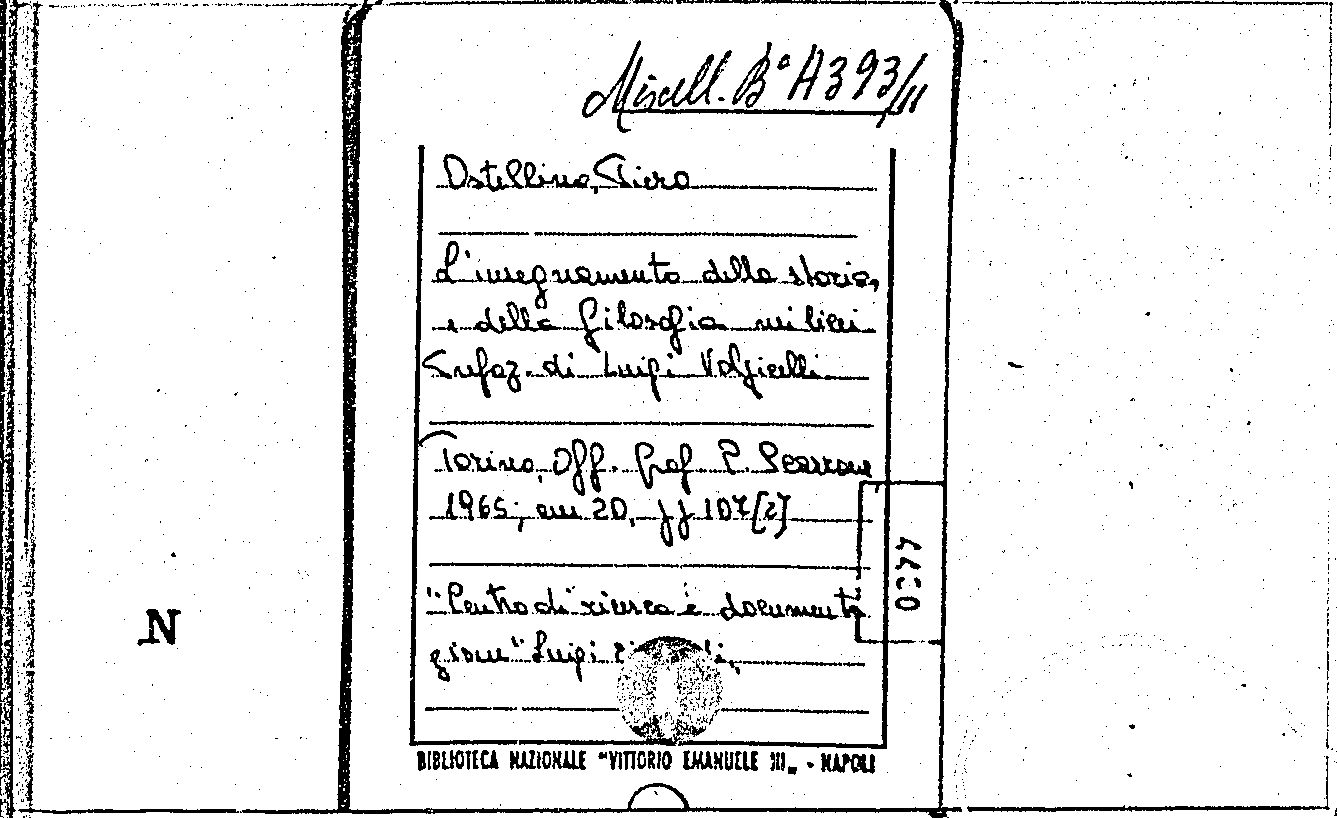 Miscell. Bª A 393/11
Ostellino, Piero
L'insegnamento della storia,
e della filosofia nei licei
Prefaz. di Luigi Volpicelli
Torino, Off. Graf. P. Scarrone
1965; cm 20, pp 107[2]
"Centro di ricerca e documenta
zione" Luigi
4430
N
BIBLIOTECA NAZIONALE "VITTORIO EMANUELE III„ - NAPOLI